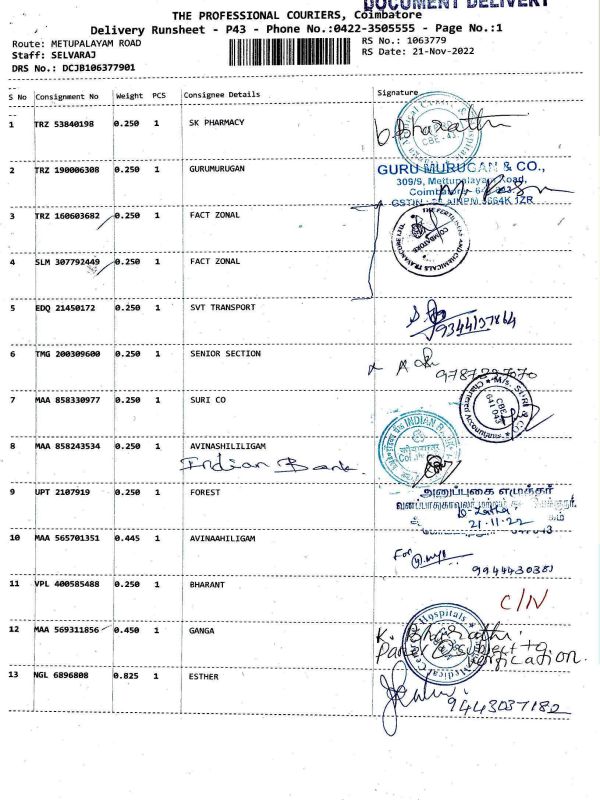 DOCUMENT DELIVERY
THE PROFESSIONAL COURIERS, Coimbatore
Delivery Runsheet - P43 - Phone No.:0422-3505555 - Page No.:1
Route: METUPALAYAM ROAD
RS No.: 1063779
Staff: SELVARAJ
RS Date: 21-Nov-2022
DRS No.: DCJB106377901
S No Consignment No Weight PCS Consignee Details Signature
1 TRZ 53840198 0.250 1 SK PHARMACY
Bharathi
CBE-43
2 TRZ 190006308 0.250 1 GURUMURUGAN
GURU MURUGAN & CO.,
309/9, Mettupalayam Road,
3 TRZ 160603682 0.250 1 FACT ZONAL
THE FERTILISERS AND CHEMICALS TRAVANCORE LTD.
COIMBATORE
4 SLM 307792449 0.250 1 FACT ZONAL
5 EDQ 21450172 0.250 1 SVT TRANSPORT
9344137864
6 TMG 200309600 0.250 1 SENIOR SECTION
9787297070
7 MAA 858330977 0.250 1 SURI CO
M/s. SURI & CO.
CBE
641 043
Chartered Accountants
8 MAA 858243534 1 AVINASHILILIGAM
Indian Bank
INDIAN BANK
9 UPT 2107919 0.250 1 FOREST
21.11.22
10 MAA 565701351 0.445 1 AVINAAHILIGAM
For
9944430381
11 VPL 400585488 0.250 1 BHARANT
C/N
12 MAA 569311856 0.450 1 GANGA
Medical Center Hospitals
K. Bharathi
Parcel subject to
verification.
13 NGL 6896808 0.825 1 ESTHER
9443037182